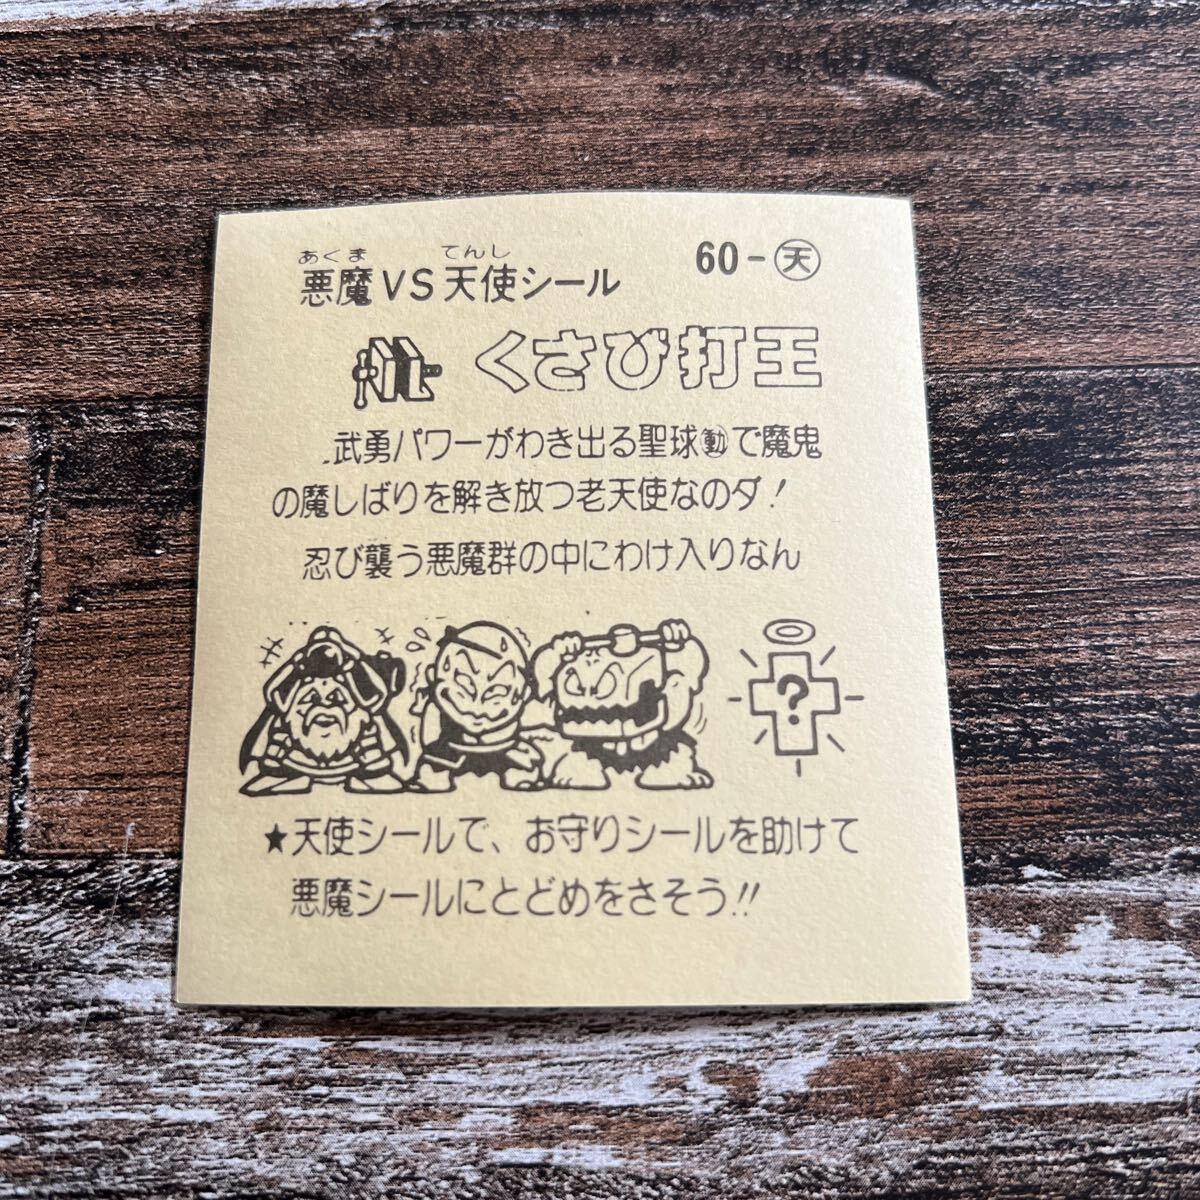 あくま てんし
悪魔VS天使シール 60-天
くさび打王
武勇パワーがわき出る聖球動で魔鬼
の魔しばりを解き放つ老天使なのダ!
忍び襲う悪魔群の中にわけ入りなん
?
★天使シールで、お守りシールを助けて
悪魔シールにとどめをさそう!!